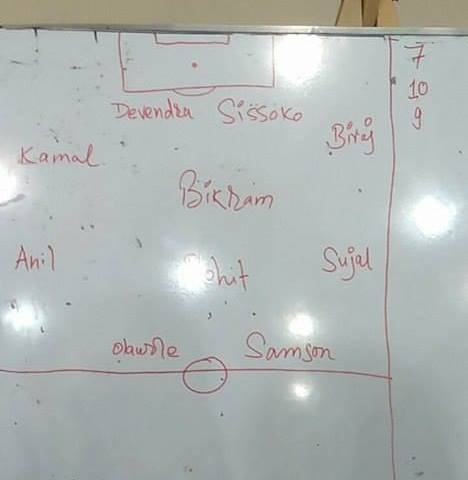 7
10
9
Devendra Sissoko
Biraj
Kamal
Bikram
Anil
Rohit
Sujal
Olawole
Samson